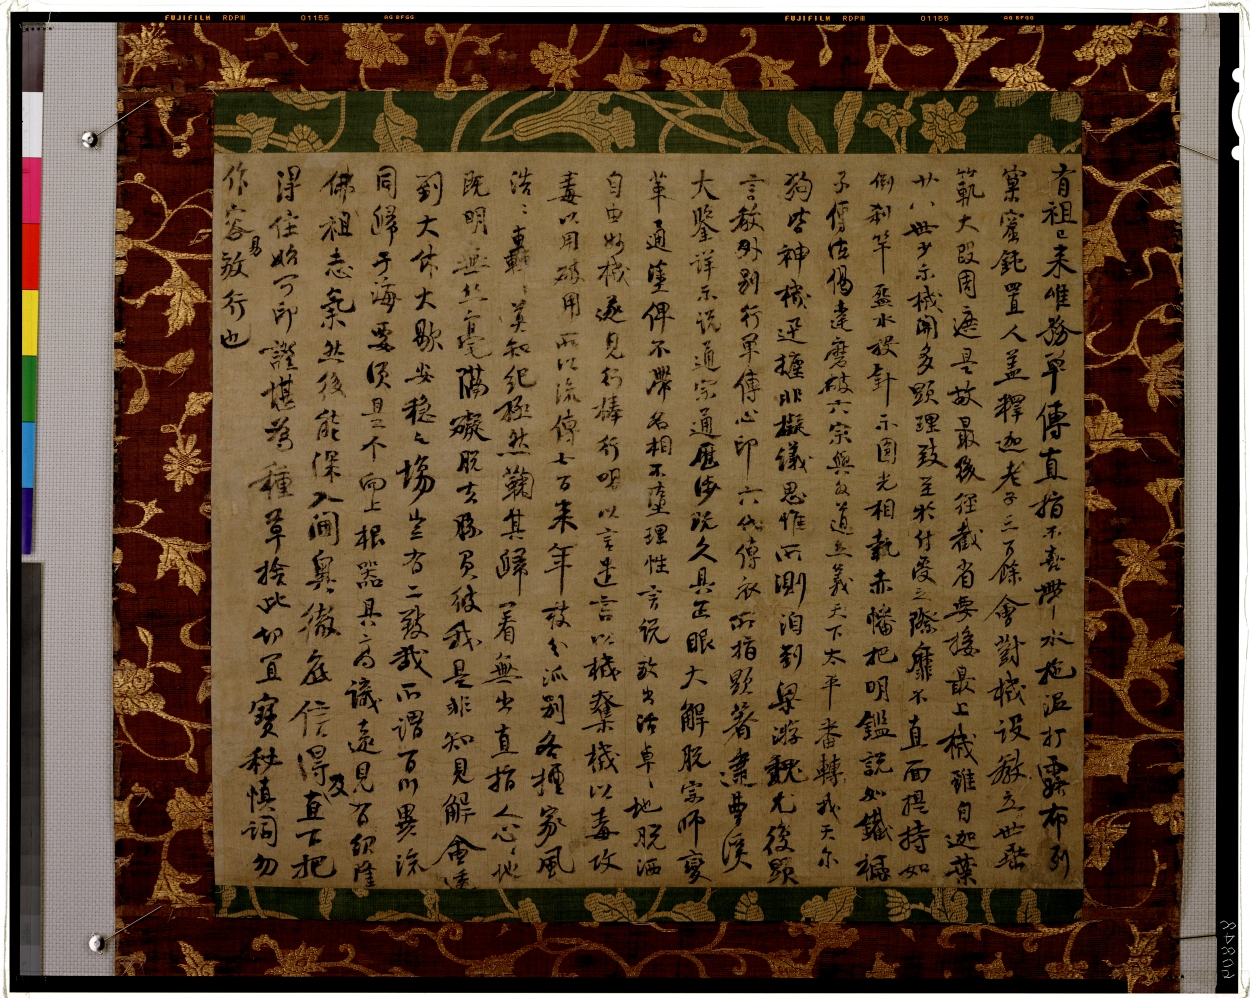 FUJIFILM RDPIII 01155
FUJIFILM RDPIII 01155
有祖已来唯務單傳直指不喜帶水拖泥打露布列
窠窟鈍置人蓋釋迦老子三百餘會對機設教立世垂
範大段周遮是故最後徑截省要接最上機雖自迦葉
廿八世少示機關多顯理致至於付受之際靡不直面提持如
倒刹竿盋水投針示圓光相執赤幡把明鑑説如鐵橛
子傳法偈達磨破六宗與外道立義天下太平番轉我天尒
狗皆神機迅捷非擬議思惟所測洎到梁游魏尤復顯
言教外別行單傳心印六代傳衣所指顯著逮曹溪
大鑒詳示説通宗通歷涉既久具正眼大解脱宗師變
革通塗俾不滯名相不墮理性言説放出活卓〻地脱洒
自由妙機遂見行棒行喝以言遣言以機奪機以毒攻
毒以用破用所以流傳七百来年枝分派別各擅家風
浩〻轟〻莫知紀極然鞠其歸着無出直指人心〻地
既明無絲毫隔礙脱去勝負彼我是非知見解會透
到大休大歇安穩之場豈有二致哉所謂百川異流
同歸于海要須是个向上根器具高識遠見有紹隆
佛祖志氣然後能深入閫奥徹底信得及直下把
得住始可印證堪為種草捨此切宜寶秘慎詞勿
作容易放行也